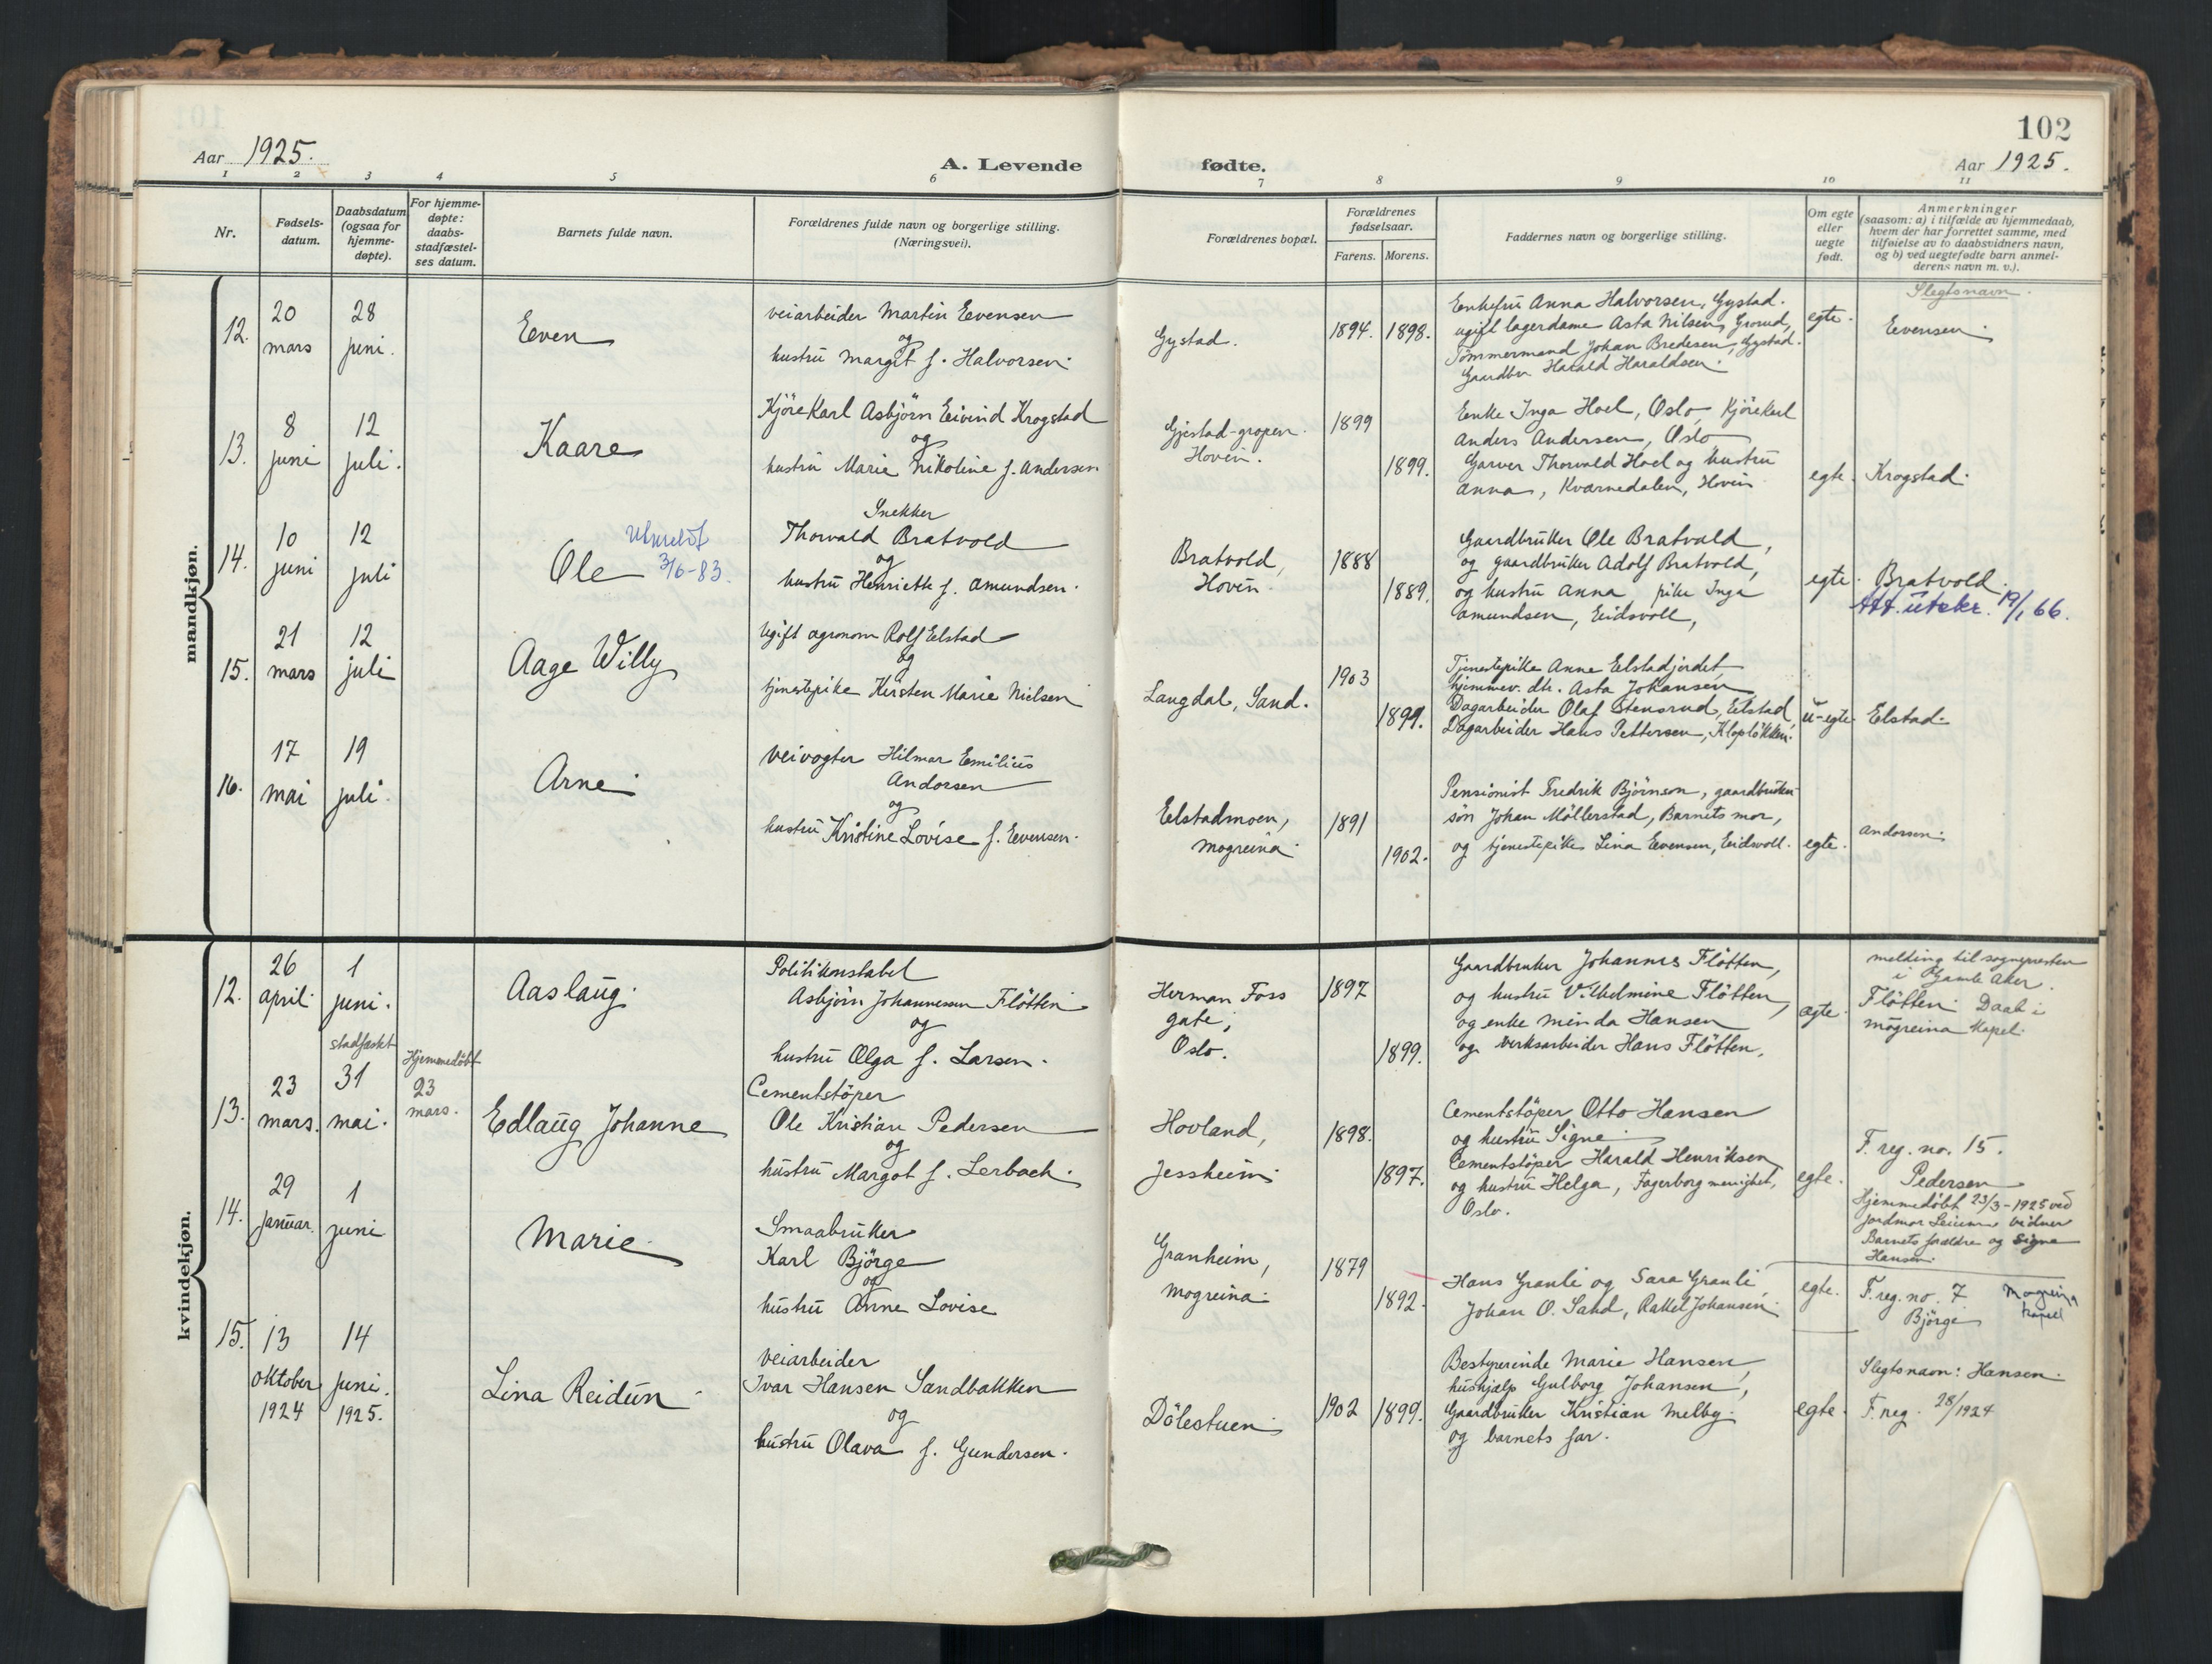 102
Aar 1925.
A. Levende
fødte.
Aar 1925.
1 2 3 4 5 6 7 8 9 10 11
Nr.
Fødsels-
datum.
Daabsdatum
(ogsaa for
hjemme-
døpte).
For hjemme-
døpte:
daabs-
stadfæstel-
ses datum.
Barnets fulde navn.
Forældrenes fulde navn og borgerlige stilling.
(Næringsvei).
Forældrenes bopæl.
Forældrenes
fødselsaar.
Farens. Morens.
Faddernes navn og borgerlige stilling.
Om egte
eller
uegte
født.
Anmerkninger
(saasom: a) i tilfælde av hjemmedaab,
hvem der har forrettet samme, med
tilføielse av to daabsvidners navn,
og b) ved uegtefødte barn anmel-
derens navn m. v.).
mandkjøn.
12.
20
mars
28
juni.
Even
veiarbeider Martin Evensen
og
hustru Margit f. Halvorsen.
Gystad.
1894. 1898.
Enkefru Anna Halvorsen, Gystad.
ugift lagerdame Asta Nilsen, Grorud,
Tømmermand Johan Bredesen, Gystad.
Gaardbr. Harald Haraldsen.
egte.
Slegtsnavn.
Evensen
13.
8
juni
12
juli.
Kaare
Kjörekarl Asbjörn Eivind Krogstad
og
hustru Marie Nikoline f. Andersen
Gjestad-gropen.
Hovin.
1899
1899.
Enke Inga Hoel, Oslo, Kjörekarl
Anders Andersen, Oslo
Garver Thorvald Hoel og hustru
Anna, Kværnedalen, Hovin
egte.
Krogstad.
14.
10
juni
12
juli
Ole
Utmeldt
3/6-83.
Snekker
Thorvald Bratvold
og
hustru Henriette f. Amundsen.
Bratvold,
Hovin.
1888
1889.
Gaardbruker Ole Bratvold,
og gaardbruker Adolf Bratvold,
og hustru Anna, pike Inga
Amundsen, Eidsvoll,
egte.
Bratvold.
Att. utskr. 19/1 66.
15.
21
mars
12
juli
Aage Willy
Ugift agronom Rolf Elstad
og
tjenestepike Kirsten Marie Nielsen
Langdal, Sand.
1903
1899.
Tjenestepike Anne Elstadjordet
hjemmev. dtr. Asta Johansen
Dagarbeider Olaf Stensrud, Elstad,
Dagarbeider Hans Pettersen, Kloplökken.
u-egte.
Elstad.
16.
17
mai
19
juli.
Arne
Veivogter Hilmar Emilius
Andorsen
og
hustru Kristine Lovise f. Evensen.
Elstadmoen,
Mogreina.
1891
1902.
Pensionist Fredrik Björnson, gaardbruker-
sön Johan Möllerstad, Barnets mor,
og tjenestepike Lina Evensen, Eidsvoll.
egte.
Andorsen.
kvindekjøn.
12.
26
april.
1
juni.
Aaslaug.
Politikonstabel
Asbjörn Johannessen Flötten
og
hustru Olga f. Larsen.
Herman Foss
gate,
Oslo.
1897
1899.
Gaardbruker Johannes Flötten,
og hustru Vilhelmine Flötten,
og enke Minda Hansen
og verksarbeider Hans Flötten.
egte.
melding til sogneprosten
i Gamle Aker.
Flötten. Daab i
Mogreina Kapel.
13.
23
mars.
stadfæstet
31
mai.
Hjemmedöbt
23
mars.
Edlaug Johanne
Cementstöper
Ole Kristian Pedersen
og
hustru Margot f. Lerbæk.
Hovland,
Jessheim.
1898.
1897.
Cementstöper Otto Hansen
og hustru Signe
Cementstöper Harald Henriksen
og hustru Helga, Fagerborg menighet,
Oslo.
egte.
F. reg. no. 15.
Pedersen
Hjemmedöbt 23/3-1925 ved
jordmor vidner
Barnets forældre og Signe
Hansen.
14.
29
Januar.
1
juni
Marie
Smaabruker
Karl Björge
og
hustru Anne Lovise
Granheim,
Mogreina.
1879
1892.
Hans Granli og Sara Granli,
Johan O. Sand, Rakel Johansen
egte.
F. reg. no. 7
Björge
Mogreina
kapell
15.
13
oktober
1924
14
juni.
1925.
Lina Reidun
Veiarbeider
Ivar Hansen Sandbakken
og
hustru Olava f. Gundersen.
Dölestuen
1902 1899.
Bestyrerinde Marie Hansen,
hushjælp Gulborg Johansen,
Gaardbruker Kristian Melby.
og barnets far.
egte.
Slegtsnavn: Hansen.
F. reg. 28/1924